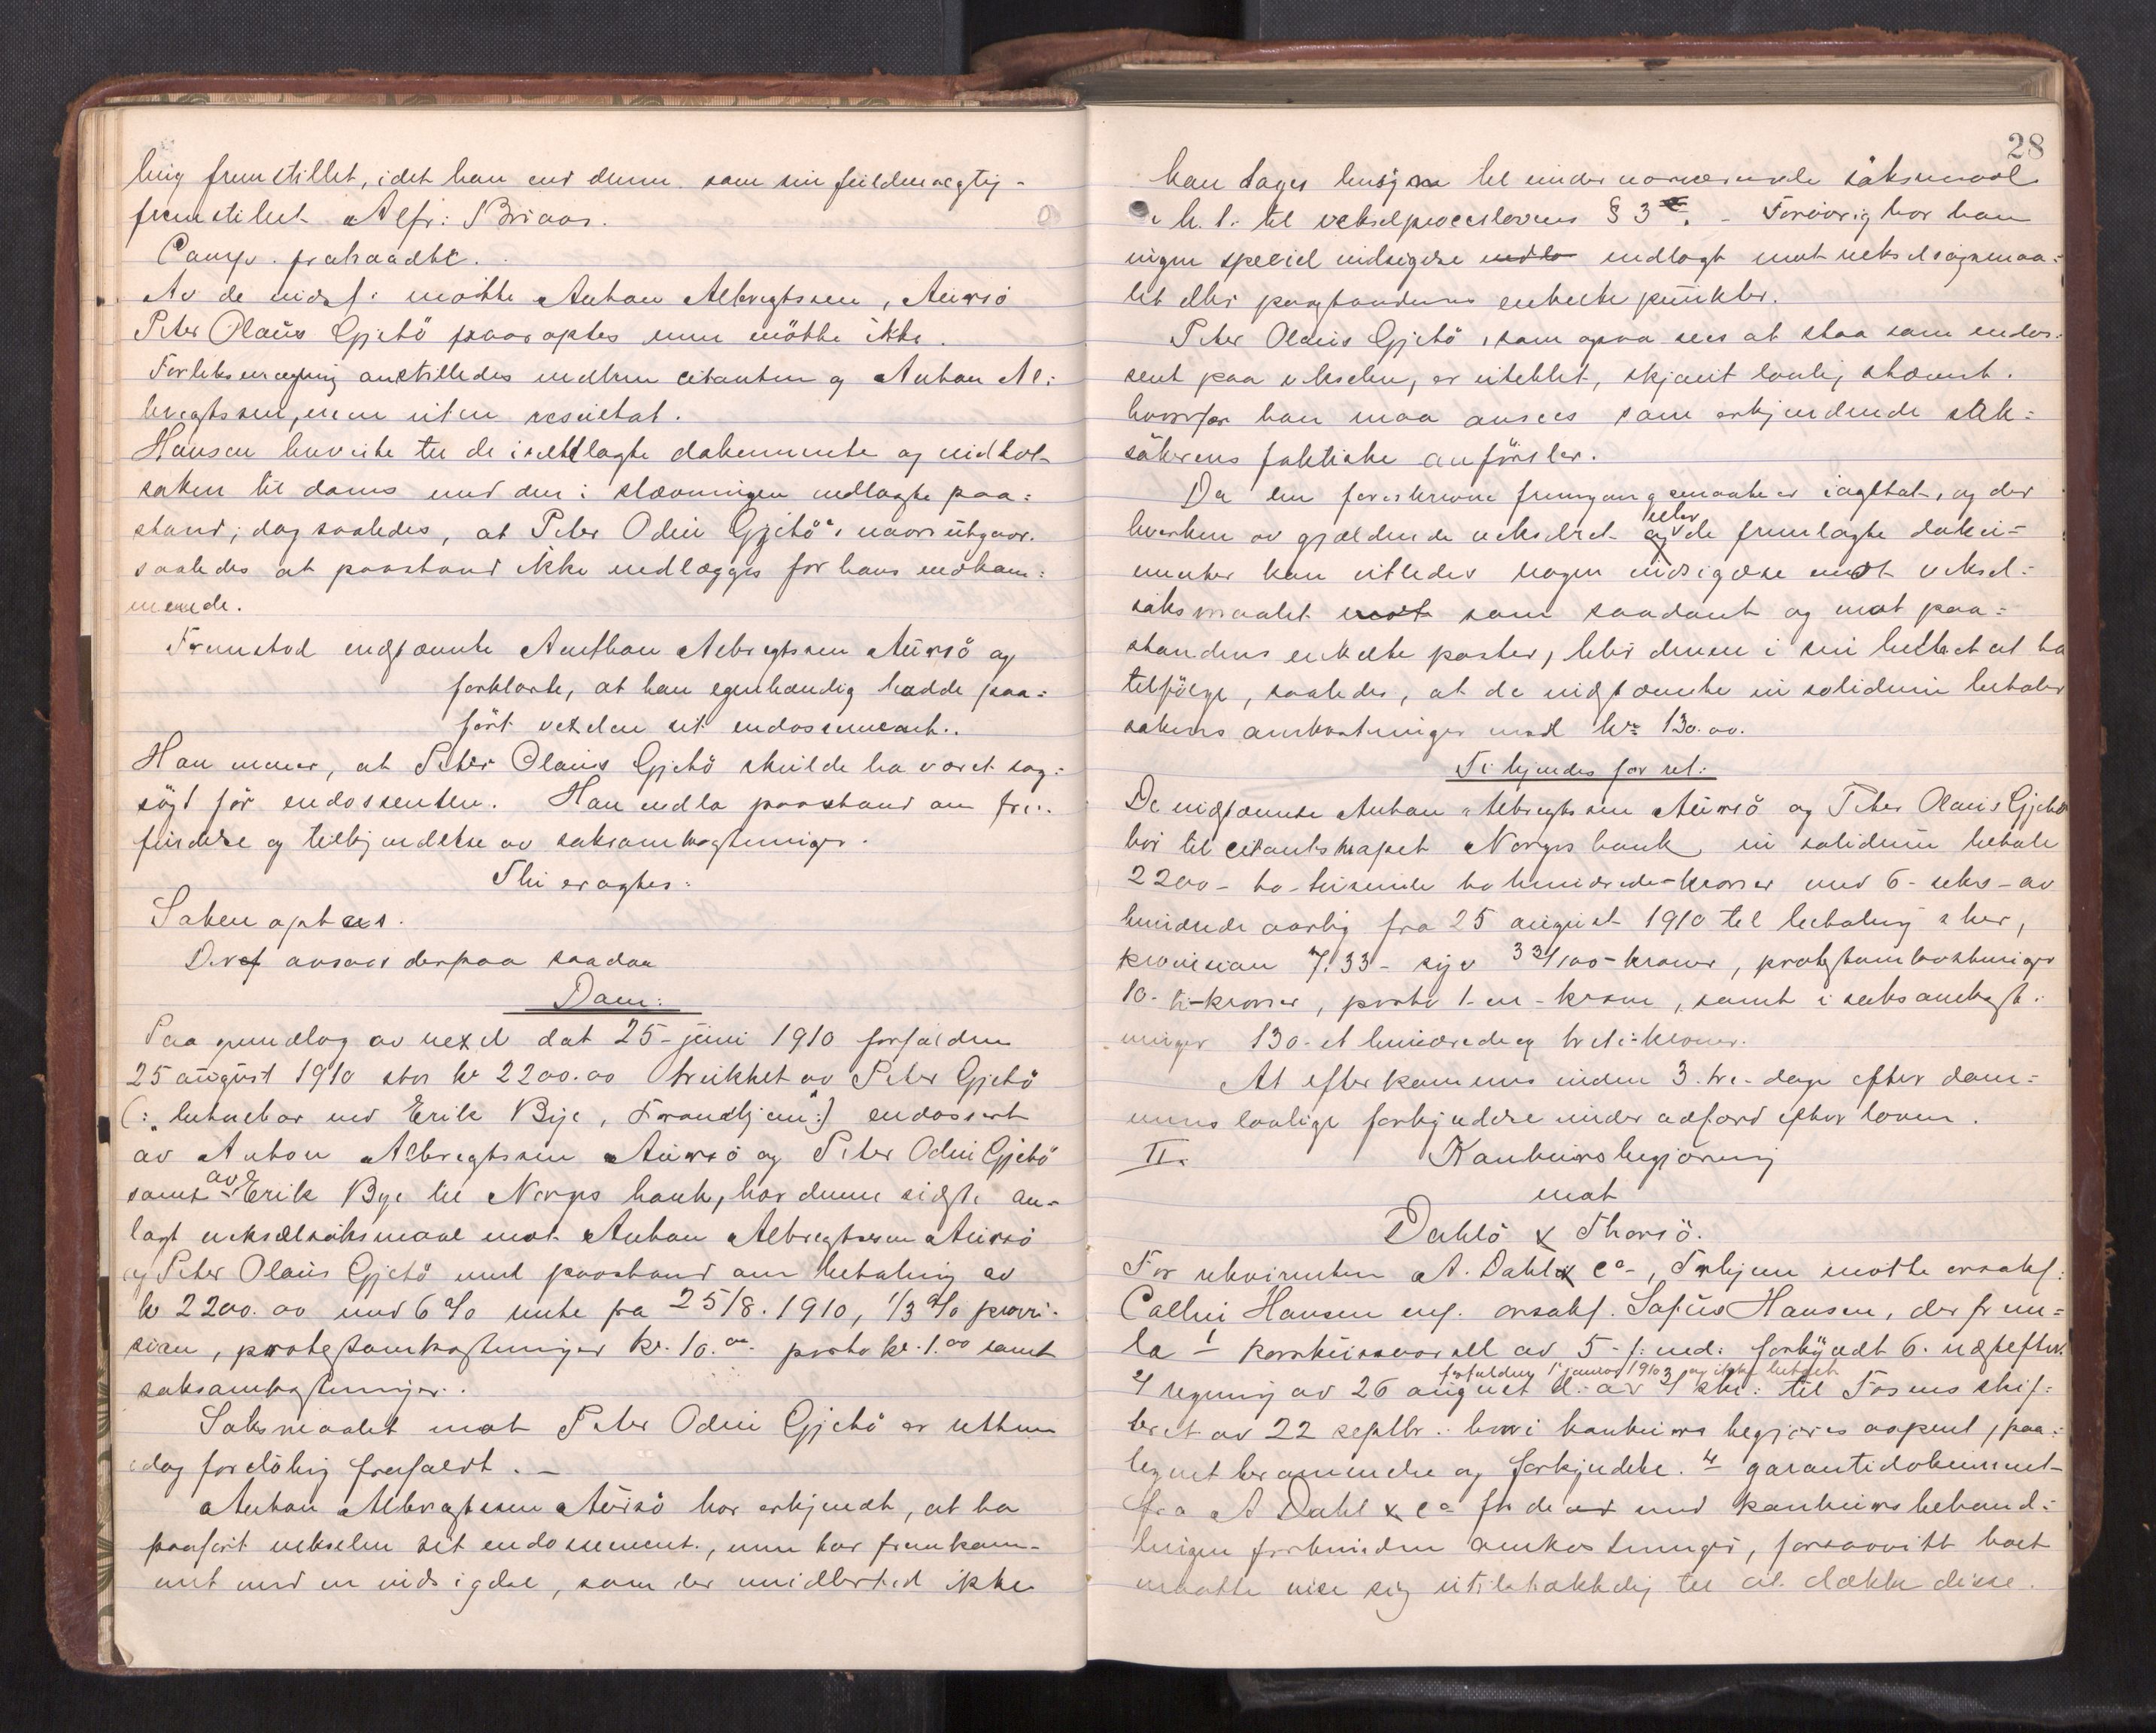 ling fremstillet, idet han end denne som sin fuldmægtig
fremstillet Alfr: Braas.
Comp. frahaadte.
Av de indst: mötte Anton Albregtssen, Aursö
Peter Olaus Gjetö paaroptes men mötte ikke.
Forliksmægling anstilledes mellem citanten og Anton Al=
bregtssen, men uten resultat.
Hansen henviste til de iretlagte dokumenter og indlot
saken til doms med den i stævningen nedlagte paa=
stand; dog saaledes, at Peter Odin Gjetö's navn utgaar.
saaledes at paastand ikke nedlægges for hans vedkom=
mende.
Fremstod indstævnte Anthon Albregtssen Aursö og
forklarte, at han egenhændig hadde paa=
fört vexelen sit endossement.
Han mener, at Peter Olaus Gjetö skulde ha været sag=
sögt för endossenten. Han nedla paastand om fri=
findelse og tilkjendelse av saksomkostninger.
Thi eragtes:
Saken optaes.
Deref avsaes derpaa saadan
Dom:
Paa grundlag av vexel dat 25 juni 1910 forfalden
25 august 1910 stor kr 2200.00 trukket av Peter Gjetö
(: "betalbar ved Erik Bye, Trondhjem":) endossert
av Anton Albregtssen Aursö og Peter Odin Gjetö
samt av Erik Bye til Norges bank, har denne sidste an=
lagt vekselsöksmaal mot Anton Albregtssen Aursö
og Peter Olaus Gjetö med paastand om betaling av
kr 2200.00 med 6 % rente fra 25/8. 1910, 1/3 % provi=
sion, protestomkostninger kr. 10.00 porto kr. 1.00 samt
saksomkostninger.
Saksmaalet mot Peter Odin Gjetö er retten
idag forelöbig frafaldt. –
Anton Albregtssen Aursö har erkjendt, at ha
paafört vekselen sit endossement, men har fremkom=
met med en indsigelse, som der imidlertid ikke
28
kan tages hensyn til under nærværende söksmaal
i h. t. til vekselproceslovens § 3. – Forövrig har han
ingen speciel indsigelse nedlagt mot vekselsögsmaa=
let eller paastandens enkelte punkter.
Peter Olaus Gjetö, som ogsaa sees at staa som endos=
sent paa vekselen, er uteblit, skjönt lovlig stævnt.
hvorfor han maa ansees som erkjendende sak=
sökerens faktiske anförsler.
Da den foreskrevne fremgangsmaate er iagttat, og der
hverken av gjældende vekselret eller de fremlagte doku=
menter kan utledes nogen indsigelse mot veksel=
söksmaalet som saadant og mot paa=
standens enkelte poster, blir denne i sin helhet at ta
tilfölge, saaledes, at de indstævnte in solidum betaler
sakens omkostninger med kr 130.00.
Ti kjendes for ret:
De indstævnte Anton Albregtssen Aursö og Peter Olaus Gjetö
bör til citantskapet Norges bank in solidum betale
2200 – to-tusinde to hundrede – kroner med 6 – seks – av
hundrede aarlig fra 25 august 1910 til betaling sker,
provision 7.33 – syv 33/100 – kroner, protestomkostninger
10 – ti – kroner, porto 1 – en – krone, samt i saksomkost=
ninger 130 – et hundrede og tredi – kroner.
At efterkommes inden 3 – tre – dage efter dom=
mens lovlige forkyndelse under adfærd efter loven.
II. Konkursbegjæring
mot
Dahlö & Thorsö.
For rekvirenten A. Dahl & Co, Trhjem mötte orsakf.
Collin Hansen mf. orsakf. Sofus Hansen, der frem=
la 1 konkursvarsel av 5 f. md. forkyndt 6. næstefter
2/ regning av 26 august d. a.
forfalden 1 januar 1910 3/ og ikke betalt
skr: til Fosens skif=
teret av 22 septbr. hvori konkurs begjæres aapnet, paa=
tegnet berammelse og forkyndelse. 4 garantidokument
fra A Dahl & Co for de med konkursbehand=
lingen forbundne omkostninger, forsaavitt boet
maatte vise sig utilstrækkelig til at dække disse.